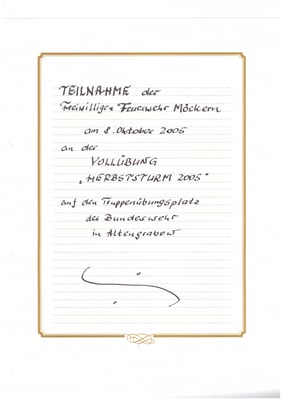 TEILNAHME der
Freiwilligen Feuerwehr Möckern
am 8. Oktober 2005
an der
VOLLÜBUNG
„HERBSTSTURM 2005"
auf den Truppenübungsplatz
der Bundeswehr
in Altengrabow